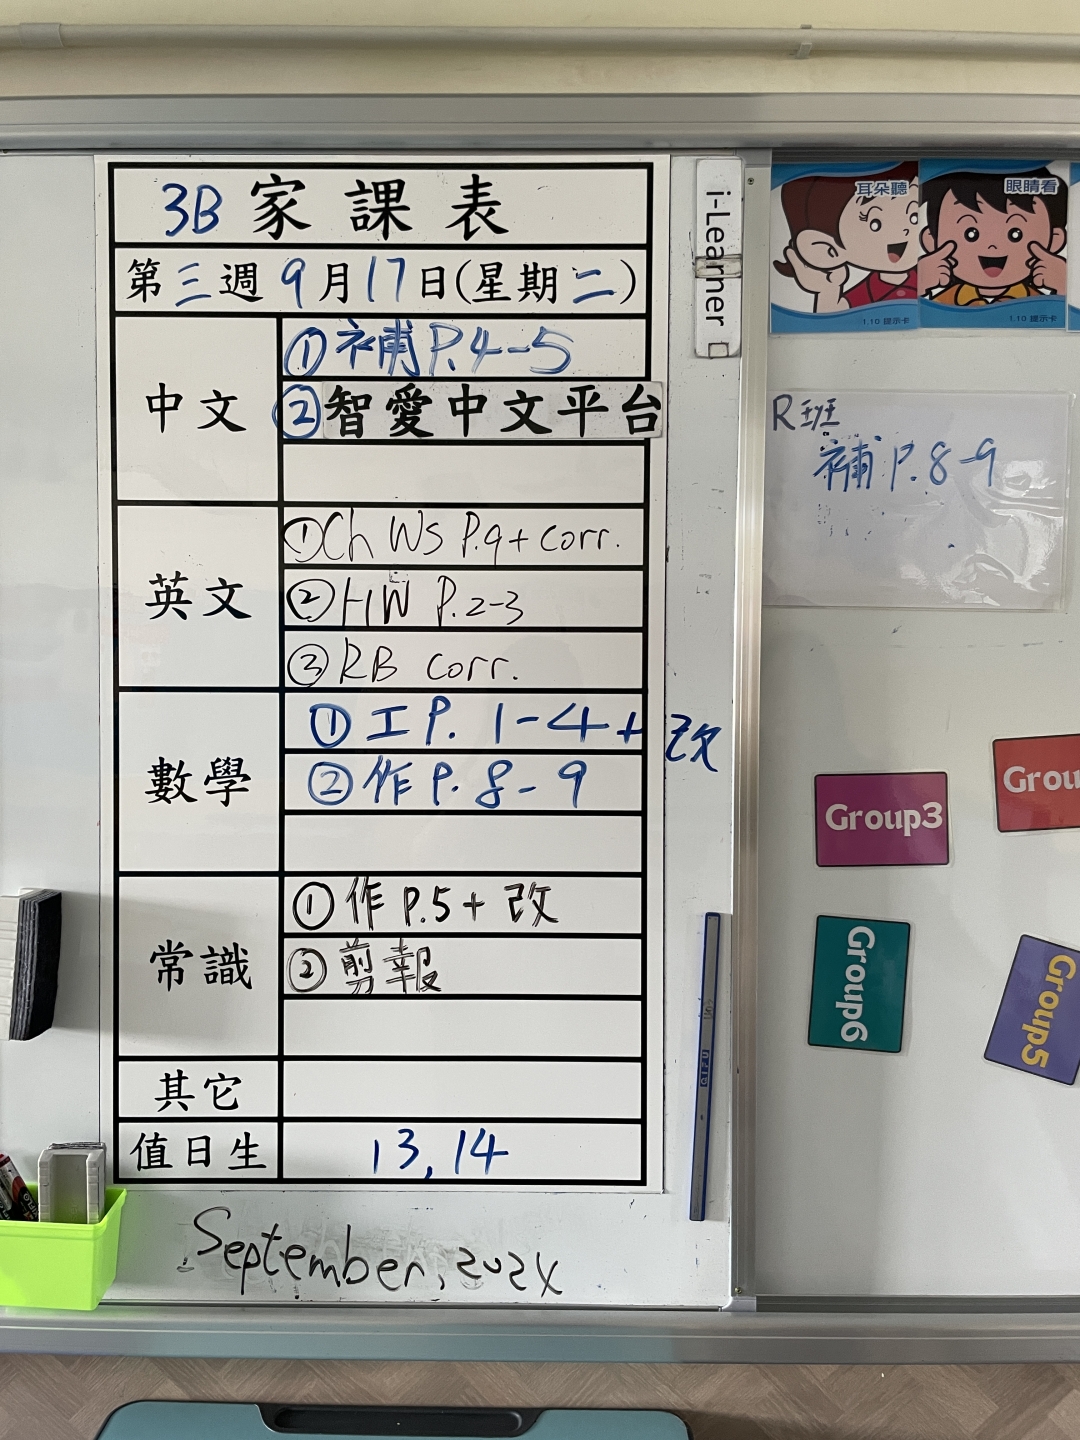 3B 家課表
第三週 9月17日(星期二)
中文
①補 P.4-5
②智愛中文平台
英文
①Ch WS P.9+corr.
②HW P.2-3
③RB corr.
數學
①工 P. 1-4+改
②作 P. 8-9
常識
①作 P.5+改
②剪報
其它
值日生
13, 14
September, 2024
i-Learner
耳朵聽
1.10 提示卡
眼睛看
1.10 提示卡
R班
補 P.8-9
Group3
Grou
Group6
Group5